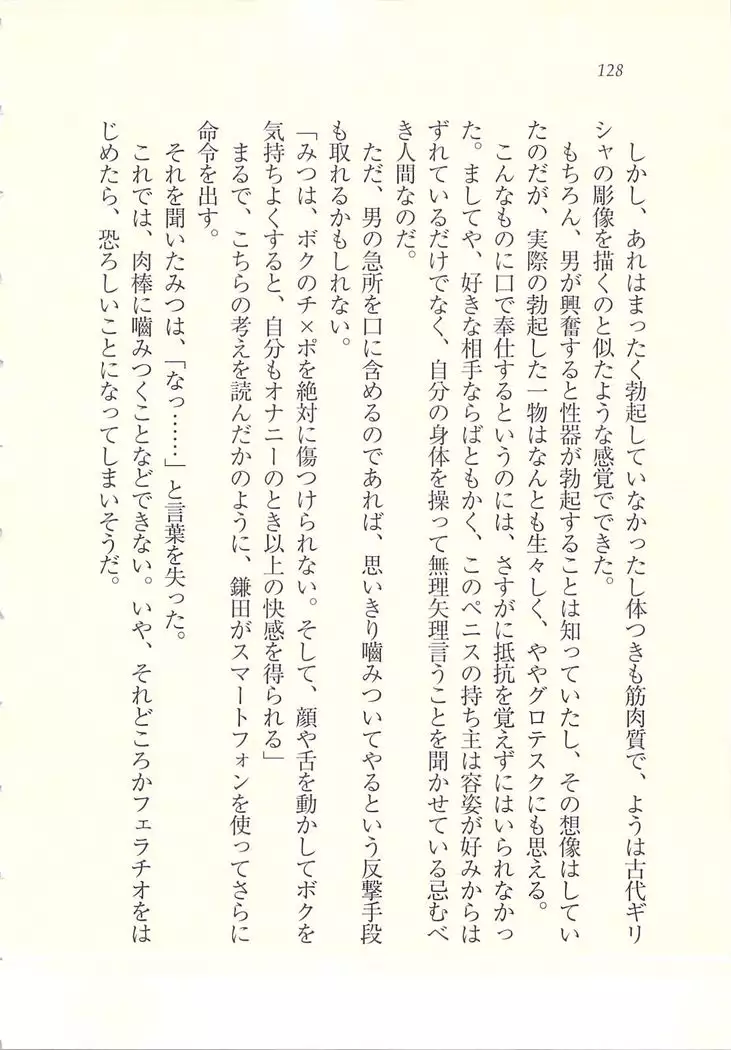 128
しかし、あれはまったく勃起していなかったし体つきも筋肉質で、ようは古代ギリ
シャの彫像を描くのと似たような感覚でできた。
もちろん、男が興奮すると性器が勃起することは知っていたし、その想像はしてい
たのだが、実際の勃起した一物はなんとも生々しく、ややグロテスクにも思える。
こんなものに口で奉仕するというのには、さすがに抵抗を覚えずにはいられなかっ
た。ましてや、好きな相手ならばともかく、このペニスの持ち主は容姿が好みからは
ずれているだけでなく、自分の身体を操って無理矢理言うことを聞かせている忌むべ
き人間なのだ。
ただ、男の急所を口に含めるのであれば、思いきり嚙みついてやるという反撃手段
も取れるかもしれない。
「みつは、ボクのチ×ポを絶対に傷つけられない。そして、顔や舌を動かしてボクを
気持ちよくすると、自分もオナニーのとき以上の快感を得られる」
まるで、こちらの考えを読んだかのように、鎌田がスマートフォンを使ってさらに
命令を出す。
それを聞いたみつは、「なっ……」と言葉を失った。
これでは、肉棒に嚙みつくことなどできない。いや、それどころかフェラチオをは
じめたら、恐ろしいことになってしまいそうだ。